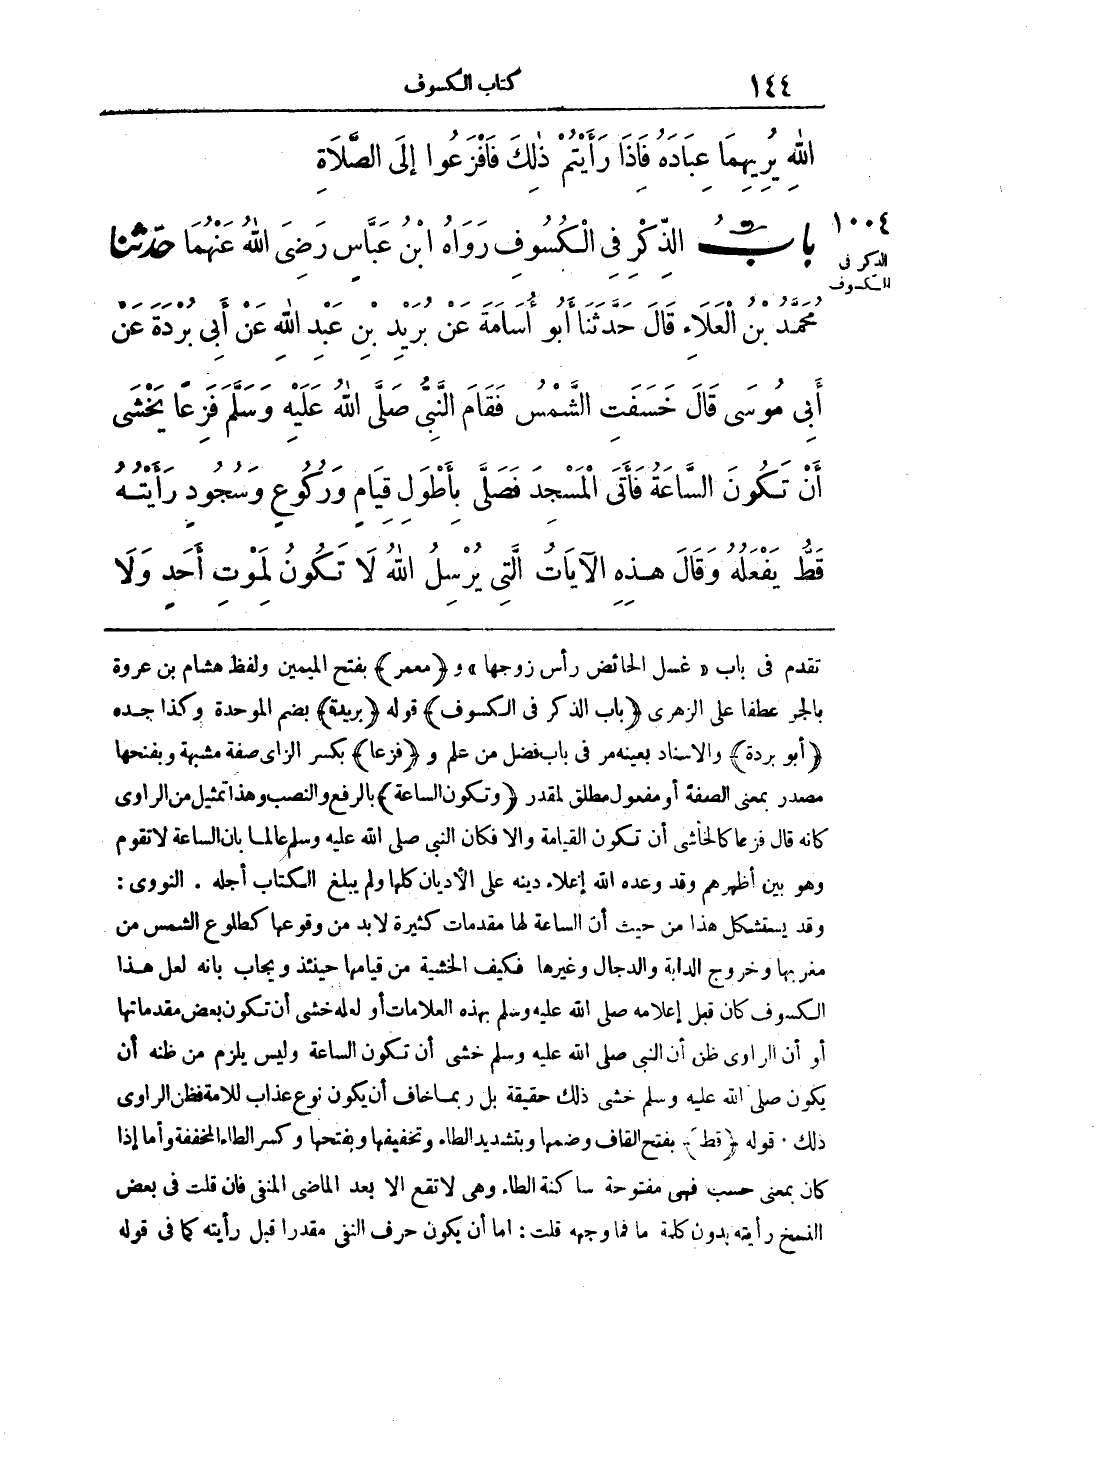 ١٤٤ كتاب الكسوف
اللهِ يُرِيهِمَا عِبَادَهُ فَاذَا رَأَيْتُمْ ذٰلِكَ فَافْزَعُوا إلَى الصَّلَاةِ
١٠٠٤ الذكر فى الكسوف
بابُ الذِّكْرِ فِى الْكُسُوفِ رَوَاهُ ابْنُ عَبَّاسٍ رَضِىَ اللهُ عَنْهُمَا حدّثنا
مُحَمَّدُ بْنُ الْعَلَاءِ قَالَ حَدَّثَنَا أَبُو أُسَامَةَ عَنْ بُرَيْدِ بْنِ عَبْدِ اللهِ عَنْ أَبِى بُرْدَةَ عَنْ
أَبِى مُوسَى قَالَ خَسَفَتِ الشَّمْسُ فَقَامَ النَّبِىُّ صَلَّى اللهُ عَلَيْهِ وَسَلَّمَ فَزِعًا يَخْشَى
أَنْ تَكُونَ السَّاعَةُ فَأَتَى الْمَسْجِدَ فَصَلَّى بِأَطْوَلِ قِيَامٍ وَرُكُوعٍ وَسُجُودٍ رَأَيْتُهُ
قَطُّ يَفْعَلُهُ وَقَالَ هٰذِهِ الآيَاتُ الَّتِى يُرْسِلُ اللهُ لَا تَكُونُ لِمَوْتِ أَحَدٍ وَلَا
تقدم فى باب « غسل الحائض رأس زوجها » و ﴿معمر﴾ بفتح الميمين ولفظ هشام بن عروة
بالجر عطفا على الزهرى ﴿باب الذكر فى الكسوف﴾ قوله ﴿بريدة﴾ بضم الموحدة وكذا جده
﴿أبو بردة﴾ والاسناد بعينه مر فى باب فضل من علم و ﴿فزعا﴾ بكسر الزاى صفة مشبهة وبفتحها
مصدر بمعنى الصفة أو مفعول مطلق لمقدر ﴿وتكون الساعة﴾ بالرفع والنصب وهذا تمثيل من الراوى
كانه قال فزعا كالخاشى أن تكون القيامة والا فكان النبى صلى الله عليه وسلم عالما بان الساعة لا تقوم
وهو بين أظهرهم وقد وعده الله إعلاء دينه على الأديان كلها ولم يبلغ الكتاب أجله . النووى :
وقد يستشكل هذا من حيث أن الساعة لها مقدمات كثيرة لابد من وقوعها كطلوع الشمس من
مغربها وخروج الدابة والدجال وغيرها فكيف الخشية من قيامها حينئذ ويجاب بانه لعل هذا
الكسوف كان قبل إعلامه صلى الله عليه وسلم بهذه العلامات أو لعله خشى أن تكون بعض مقدماتها
أو أن الراوى ظن أن النبى صلى الله عليه وسلم خشى أن تكون الساعة وليس يلزم من ظنه أن
يكون صلى الله عليه وسلم خشى ذلك حقيقة بل ربما خاف أن يكون نوع عذاب للامة فظن الراوى
ذلك . قوله ﴿قط﴾ بفتح القاف وضمها وبتشديد الطاء وتخفيفها وبفتحها وكسر الطاء المخففة وأما إذا
كان بمعنى حسب فهى مفتوحة ساكنة الطاء وهى لا تقع الا بعد الماضى المنفى فان قلت فى بعض
النسخ رأيته بدون كلمة ما فما وجهه قلت : اما أن يكون حرف النفى مقدرا قبل رأيته كما فى قوله